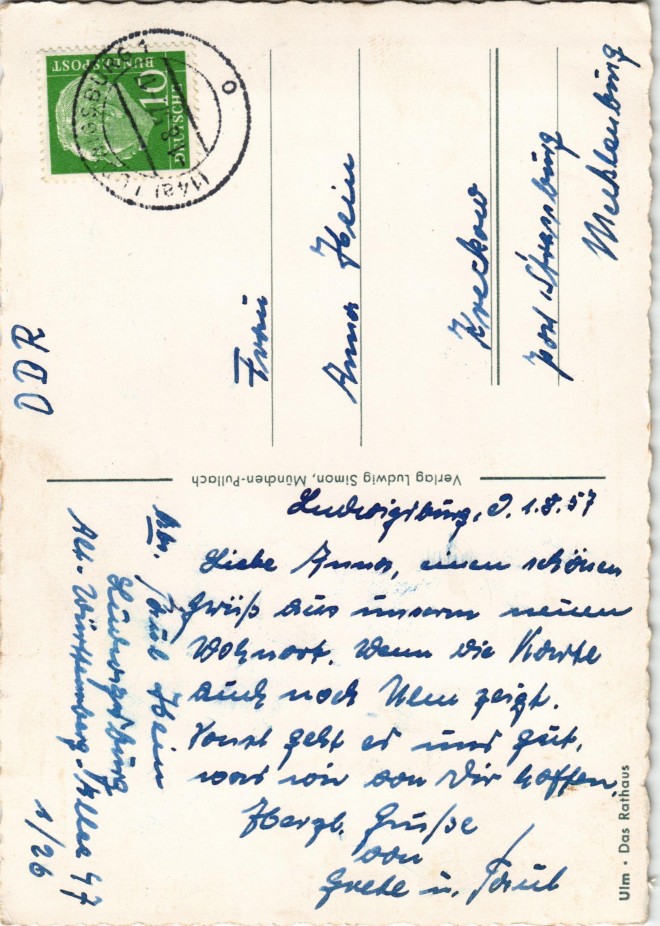 DEUTSCHE
BUNDESPOST
10
(14a) LUDWIGSBURG 1
DDR
Frau
Anna Hein
Kreckow
post Strassburg
Mecklenburg
Verlag Ludwig Simon, München-Pullach
Ulm · Das Rathaus
Ludwigsburg, d. 1.8.57
Liebe Anna, einen schönen
Grüß aus unserm neuen
Wohnort. Wenn die Karte
auch noch Ulm zeigt.
Sonst geht es uns gut,
was wir von Dir hoffen.
Herzl. Grüße
von
Grete u. Paul
Abs. Paul Hein
Ludwigsburg
Alt-Württemberg-Allee 47
1/26